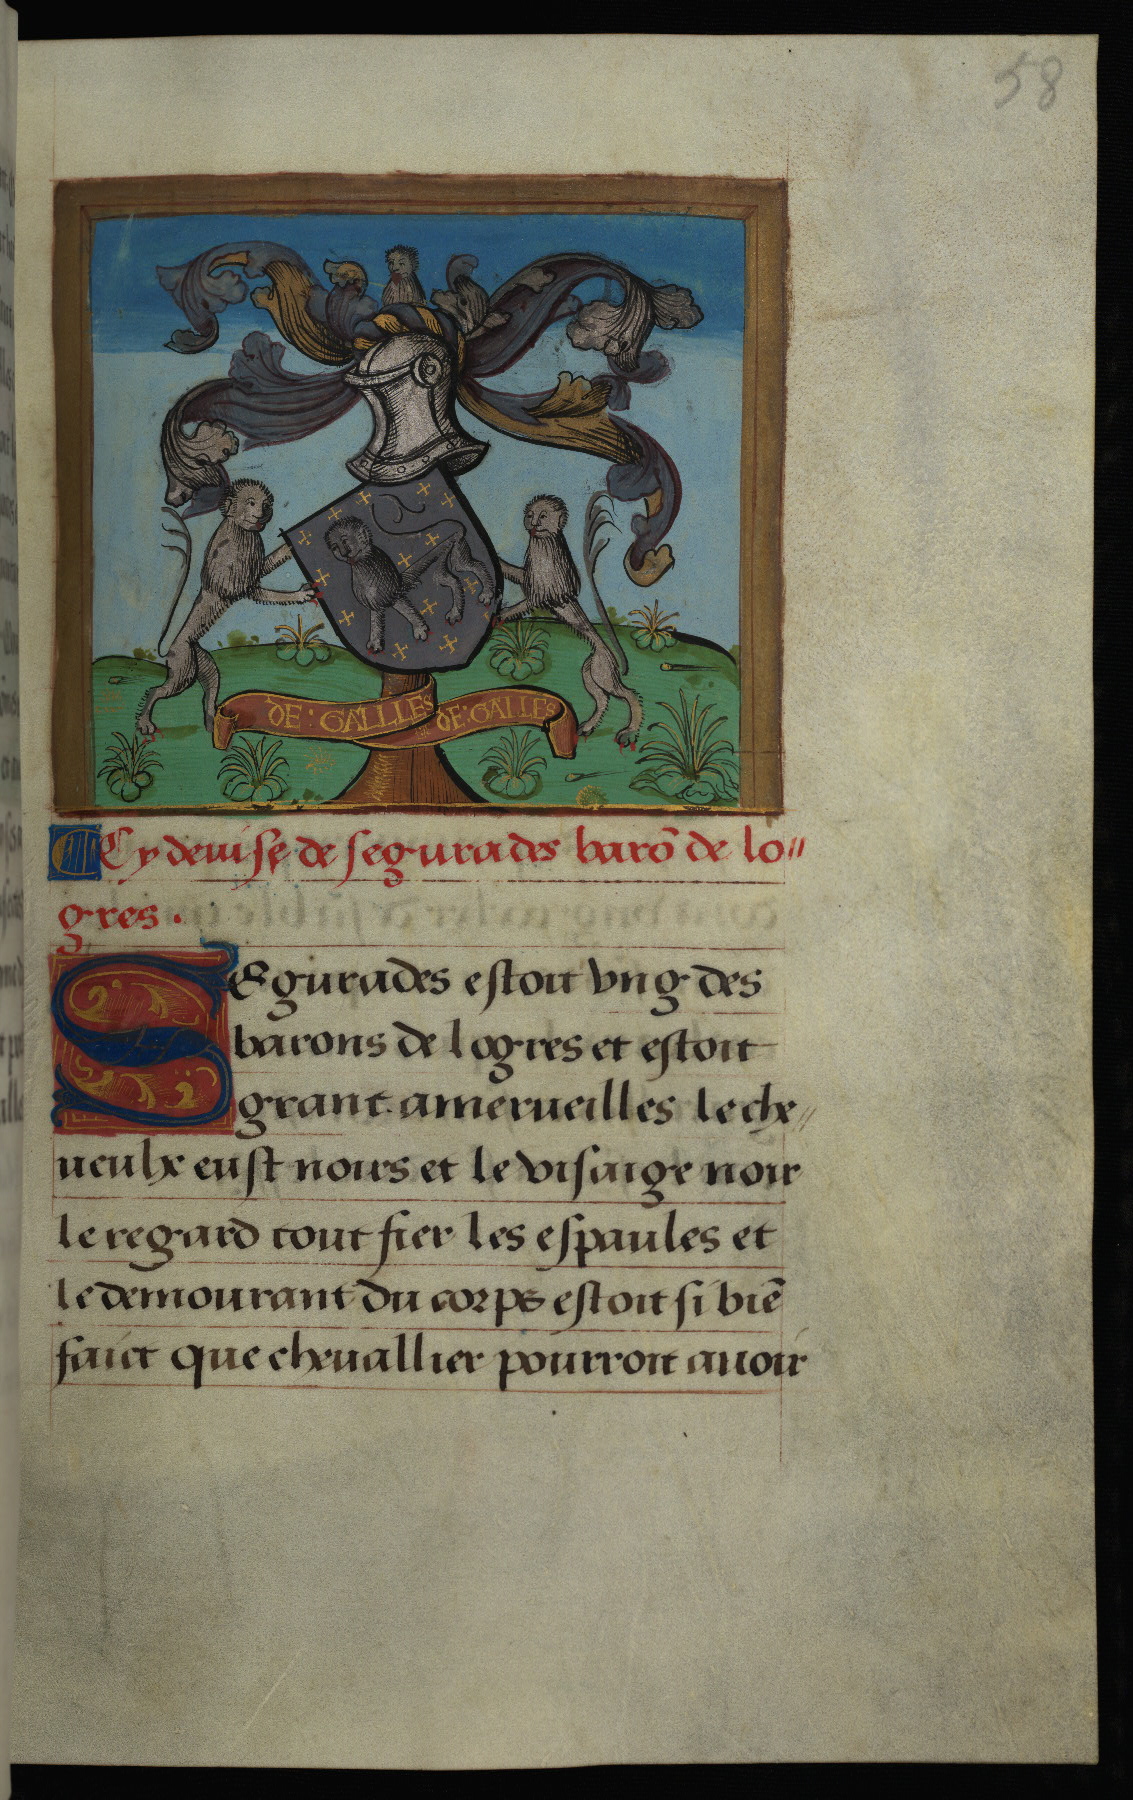 58
DE : GALLLES DE : GALLES
Cy deuise de segurades barō de lo〃
gres .
SEgurades estoit vng des
barons de logres et estoit
grant amerueilles le che〃
ueulx eust noirs et le visaige noir
le regard tout fier les espaules et
le demourant du corps estoit si biē
faict que cheuallier pourroit auoir